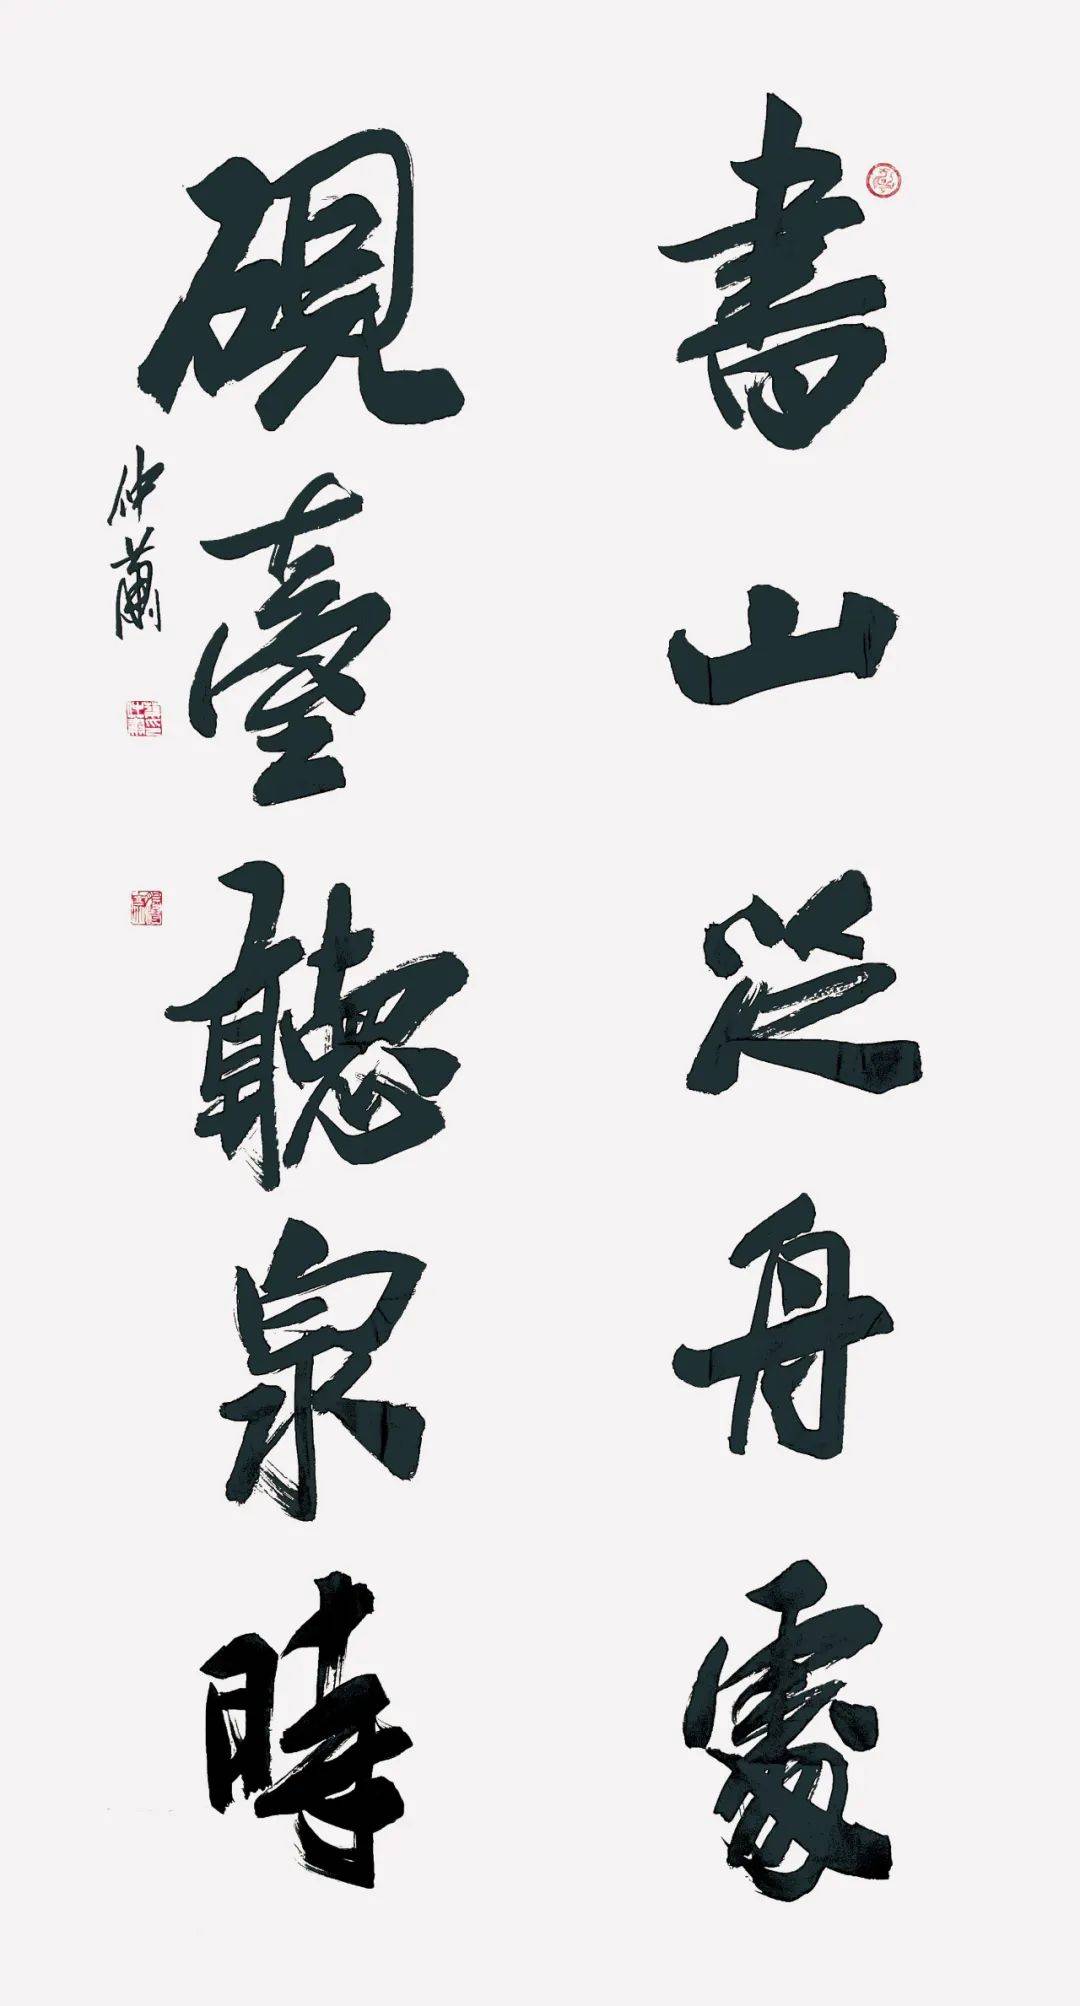 書山泛舟處
硯臺聽泉時
仲蕭